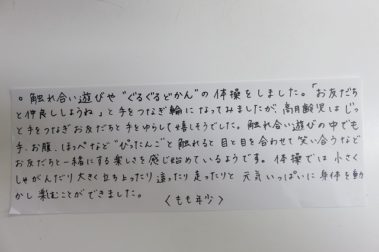 。触れ合い遊びや“ぐるぐるどかん”の体操をしました。「お友だち
と仲良ししようね」と手をつなぎ輪になってみましたが、高月齢児はじっ
と手をつなぎお友だちと手をゆらして嬉しそうでした。触れ合い遊びの中でも
手、お腹、ほっぺなど“ぴったんこ”と触れると目と目を合わせて笑い合うなど
お友だちと一緒にする楽しさを感じ始めているようです。体操では小さく
しゃがんだり大きく立ち上ったり這ったり走ったりと元気いっぱいに身体を動
かし楽むことができました。
〈もも年少〉